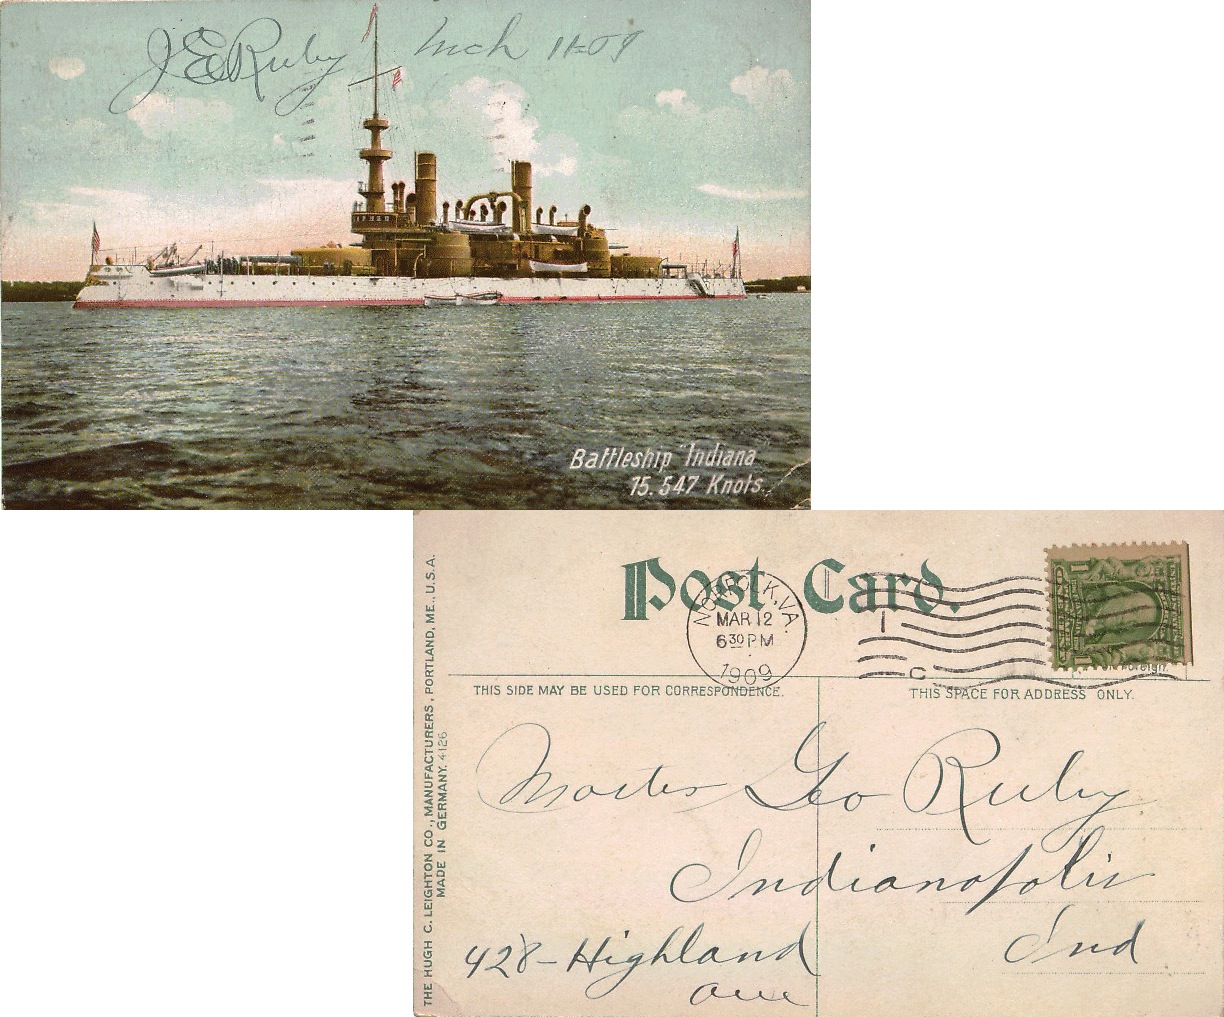 J E Ruby Mch 11-09
Battleship "Indiana
15.547 Knots.
Post Card.
NORFOLK, VA.
MAR 12
6 30 PM
1909
C
THIS SIDE MAY BE USED FOR CORRESPONDENCE.
THIS SPACE FOR ADDRESS ONLY.
Master Geo Ruby
Indianapolis
Ind
428- Highland
ave
THE HUGH C. LEIGHTON CO., MANUFACTURERS, PORTLAND, ME., U.S.A.
MADE IN GERMANY. 4126